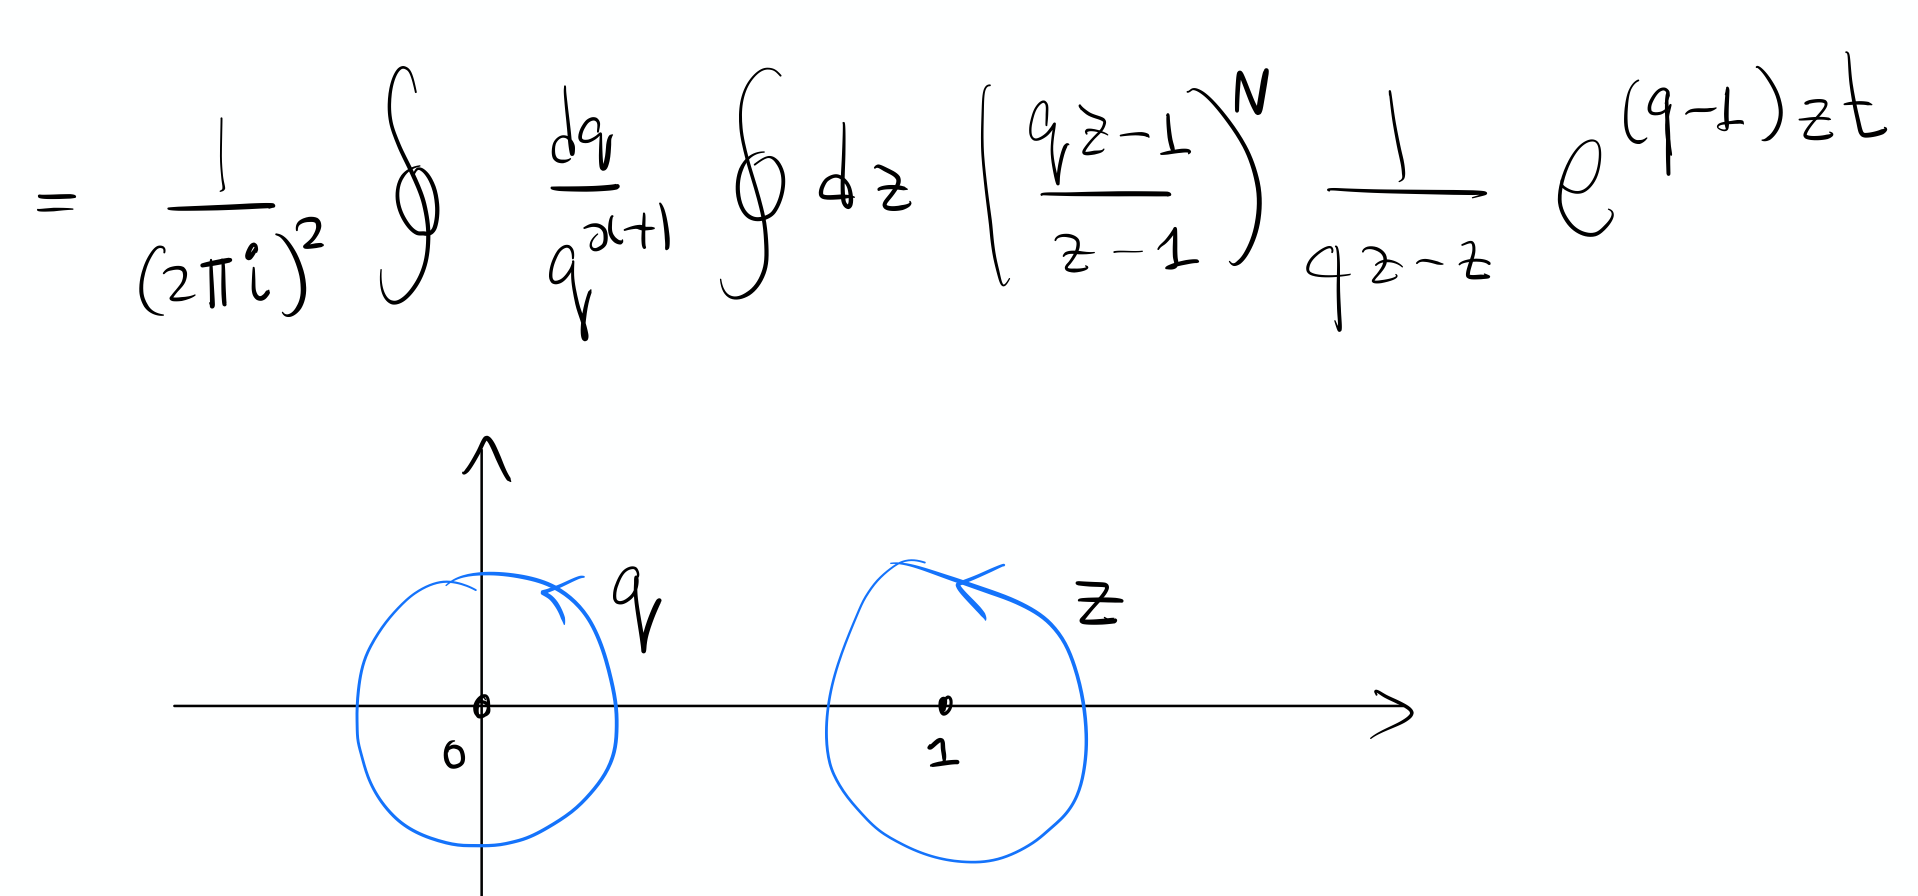 = \frac{1}{(2\pi i)^2} \oint \frac{dq}{q^{x+1}} \oint dz \left( \frac{qz-1}{z-1} \right)^N \frac{1}{qz-z} e^{(q-1)zt}
q z
0 1